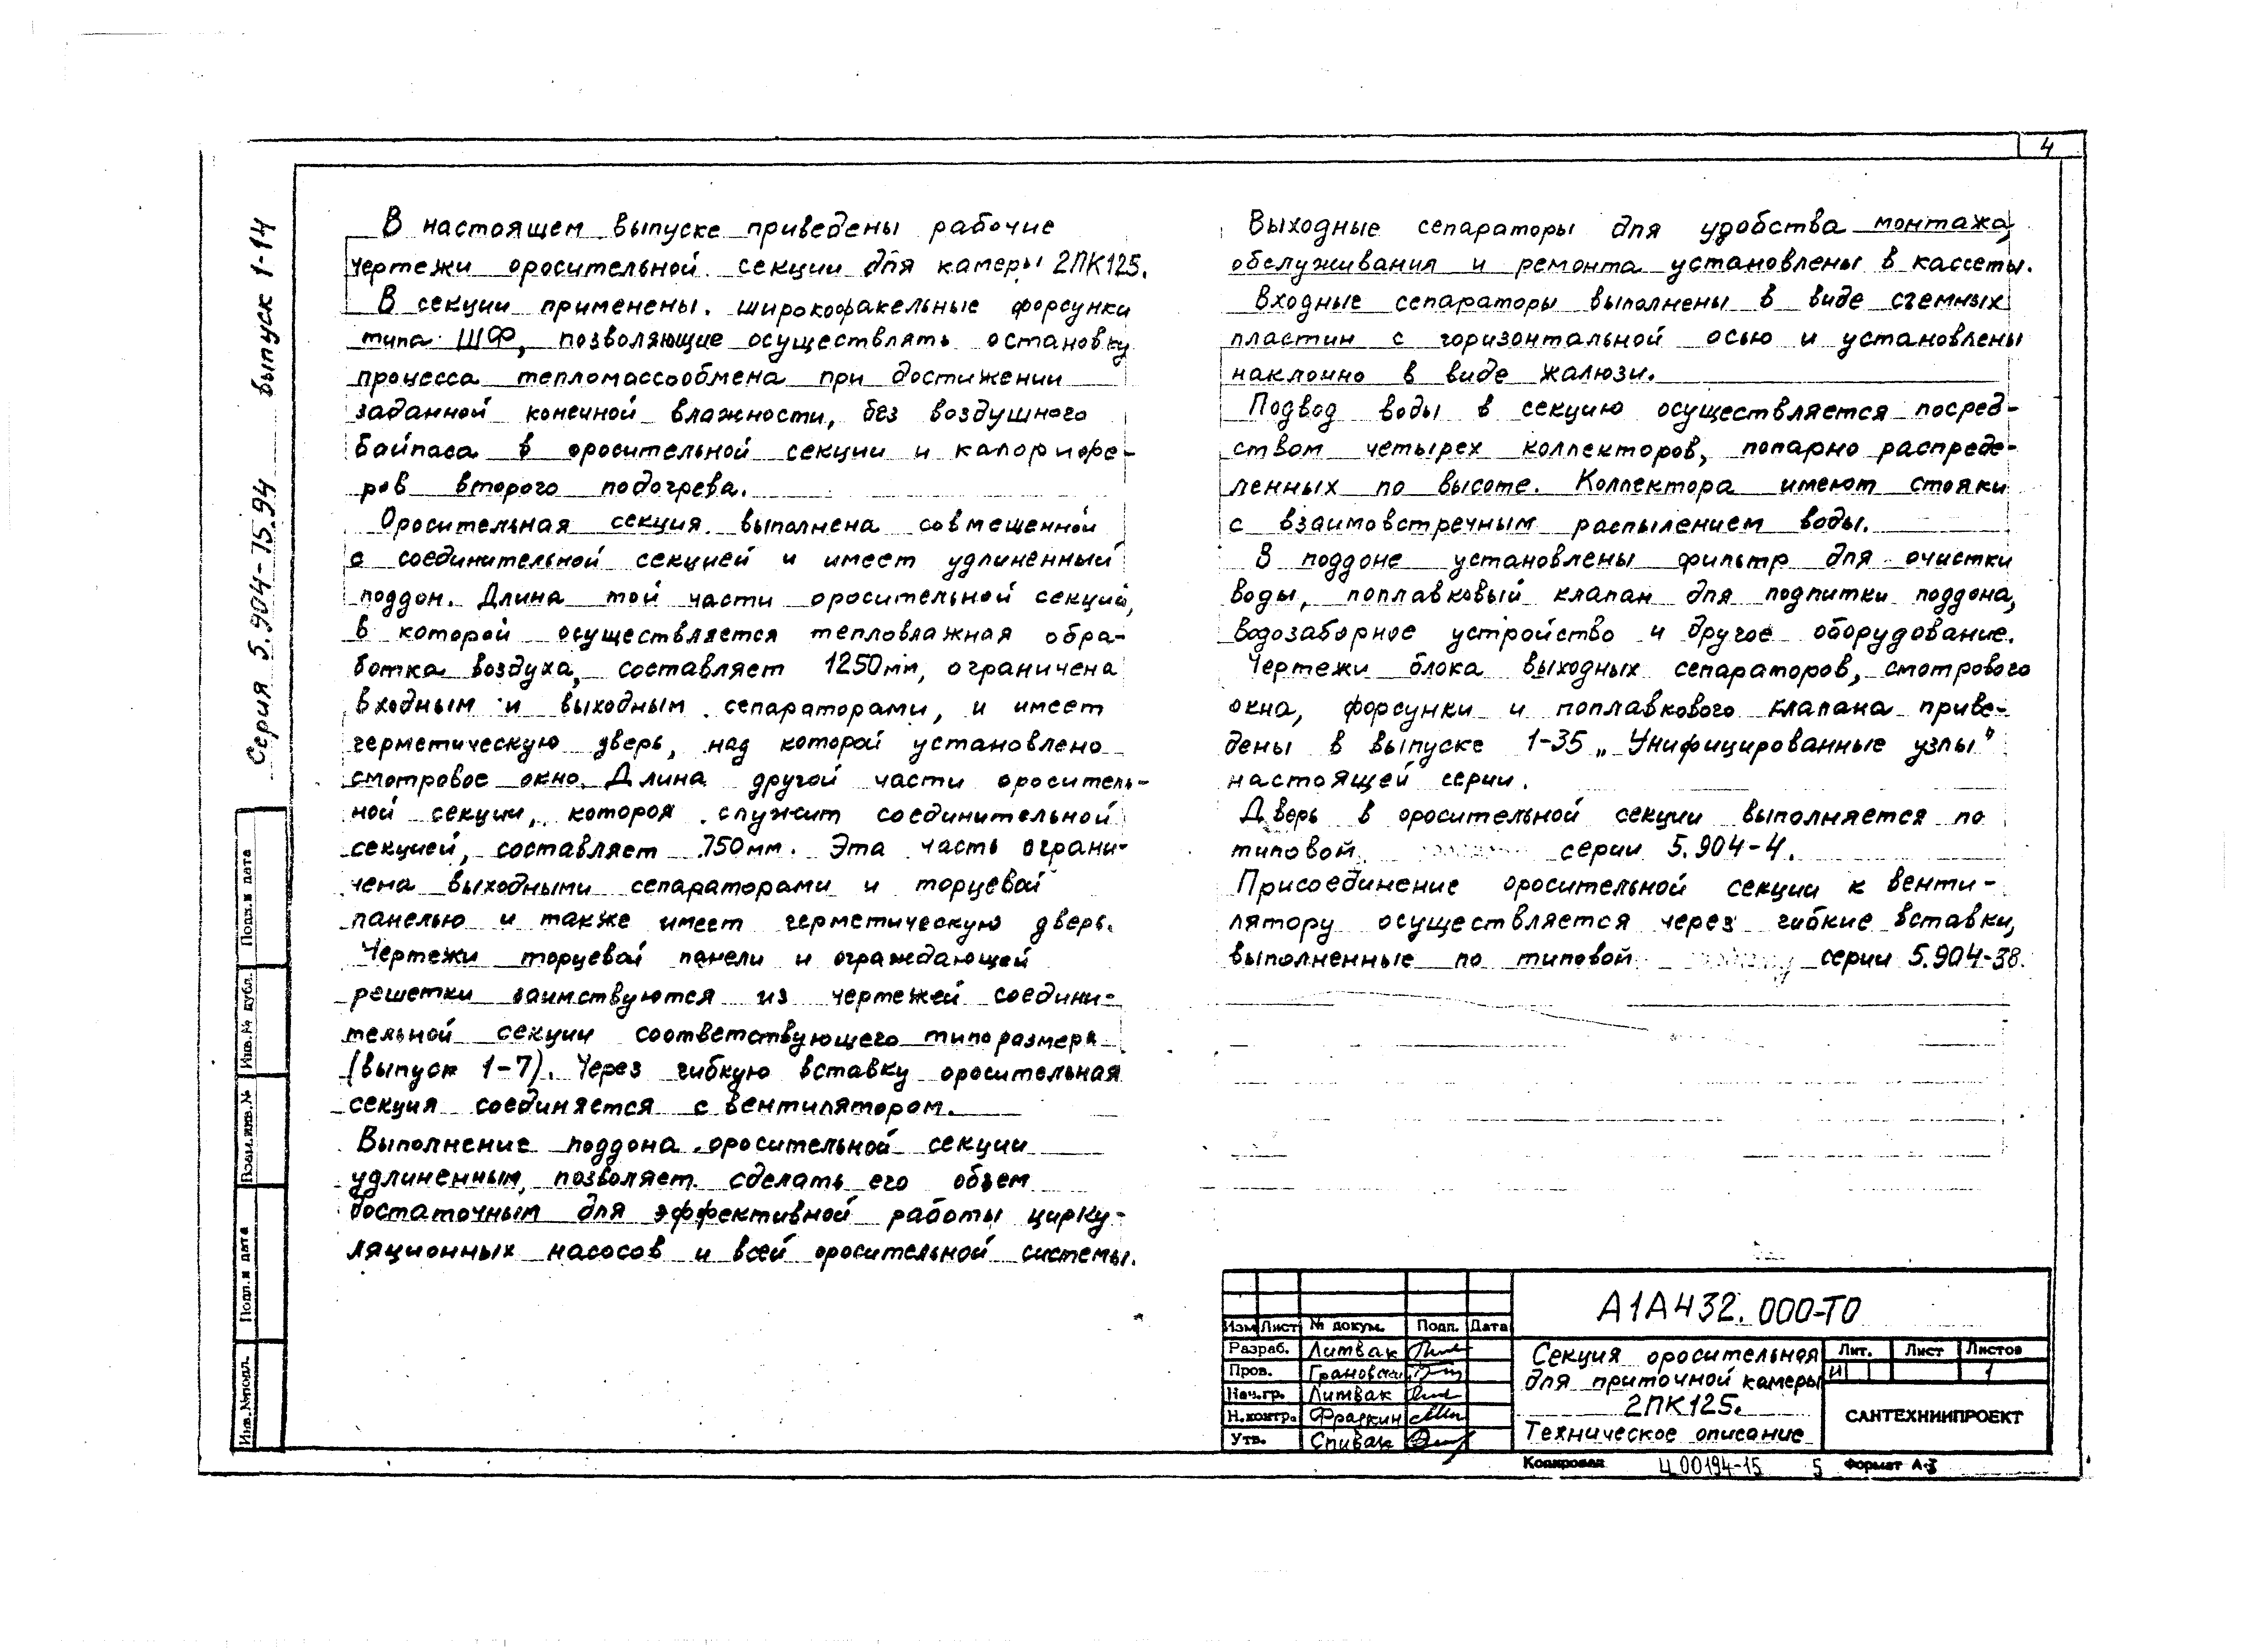 4
Серия 5.904-75.94 выпуск 1-14
В настоящем выпуске приведены рабочие
чертежи оросительной секции для камеры 2ПК125.
В секции применены широкофакельные форсунки
типа ШФ, позволяющие осуществлять остановку
процесса тепломассообмена при достижении
заданной конечной влажности, без воздушного
байпаса в оросительной секции и калорифе-
ров второго подогрева.
Оросительная секция выполнена совмещенной
с соединительной секцией и имеет удлиненный
поддон. Длина той части оросительной секции,
в которой осуществляется тепловлажная обра-
ботка воздуха, составляет 1250мм, ограничена
входным и выходным сепараторами, и имеет
герметическую дверь, над которой установлено
смотровое окно. Длина другой части ороситель-
ной секции, которая служит соединительной
секцией, составляет 750мм. Эта часть ограни-
чена выходными сепараторами и торцевой
панелью и также имеет герметическую дверь.
Чертежи торцевой панели и ограждающей
решетки заимствуются из чертежей соедини-
тельной секции соответствующего типоразмера
(выпуск 1-7). Через гибкую вставку оросительная
секция соединяется с вентилятором.
Выполнение поддона оросительной секции
удлиненным, позволяет сделать его объем
достаточным для эффективной работы цирку-
ляционных насосов и всей оросительной системы.
Выходные сепараторы для удобства монтажа,
обслуживания и ремонта установлены в кассеты.
Входные сепараторы выполнены в виде съемных
пластин с горизонтальной осью и установлены
наклонно в виде жалюзи.
Подвод воды в секцию осуществляется посред-
ством четырех коллекторов, попарно распреде-
ленных по высоте. Коллектора имеют стояки
с взаимовстречным распылением воды.
В поддоне установлены фильтр для очистки
воды, поплавковый клапан для подпитки поддона,
водозаборное устройство и другое оборудование.
Чертежи блока выходных сепараторов, смотрового
окна, форсунки и поплавкового клапана приве-
дены в выпуске 1-35 „Унифицированные узлы"
настоящей серии.
Дверь в оросительной секции выполняется по
типовой серии 5.904-4.
Присоединение оросительной секции к венти-
лятору осуществляется через гибкие вставки,
выполненные по типовой серии 5.904-38.
Подп. и дата
Инв. № дубл.
Взам. инв. №
Подп. и дата
Инв. № подл.
А1А432.000-ТО
Изм Лист № докум. Подп. Дата
Разраб. Литвак
Пров. Грановский
Нач.гр. Литвак
Н.контр. Фрадкин
Утв. Спивак
Секция оросительная
для приточной камеры
2ПК125.
Техническое описание
Лит. Лист Листов
И 1
САНТЕХНИИПРОЕКТ
Копировал Ц00194-15 5 Формат А-3